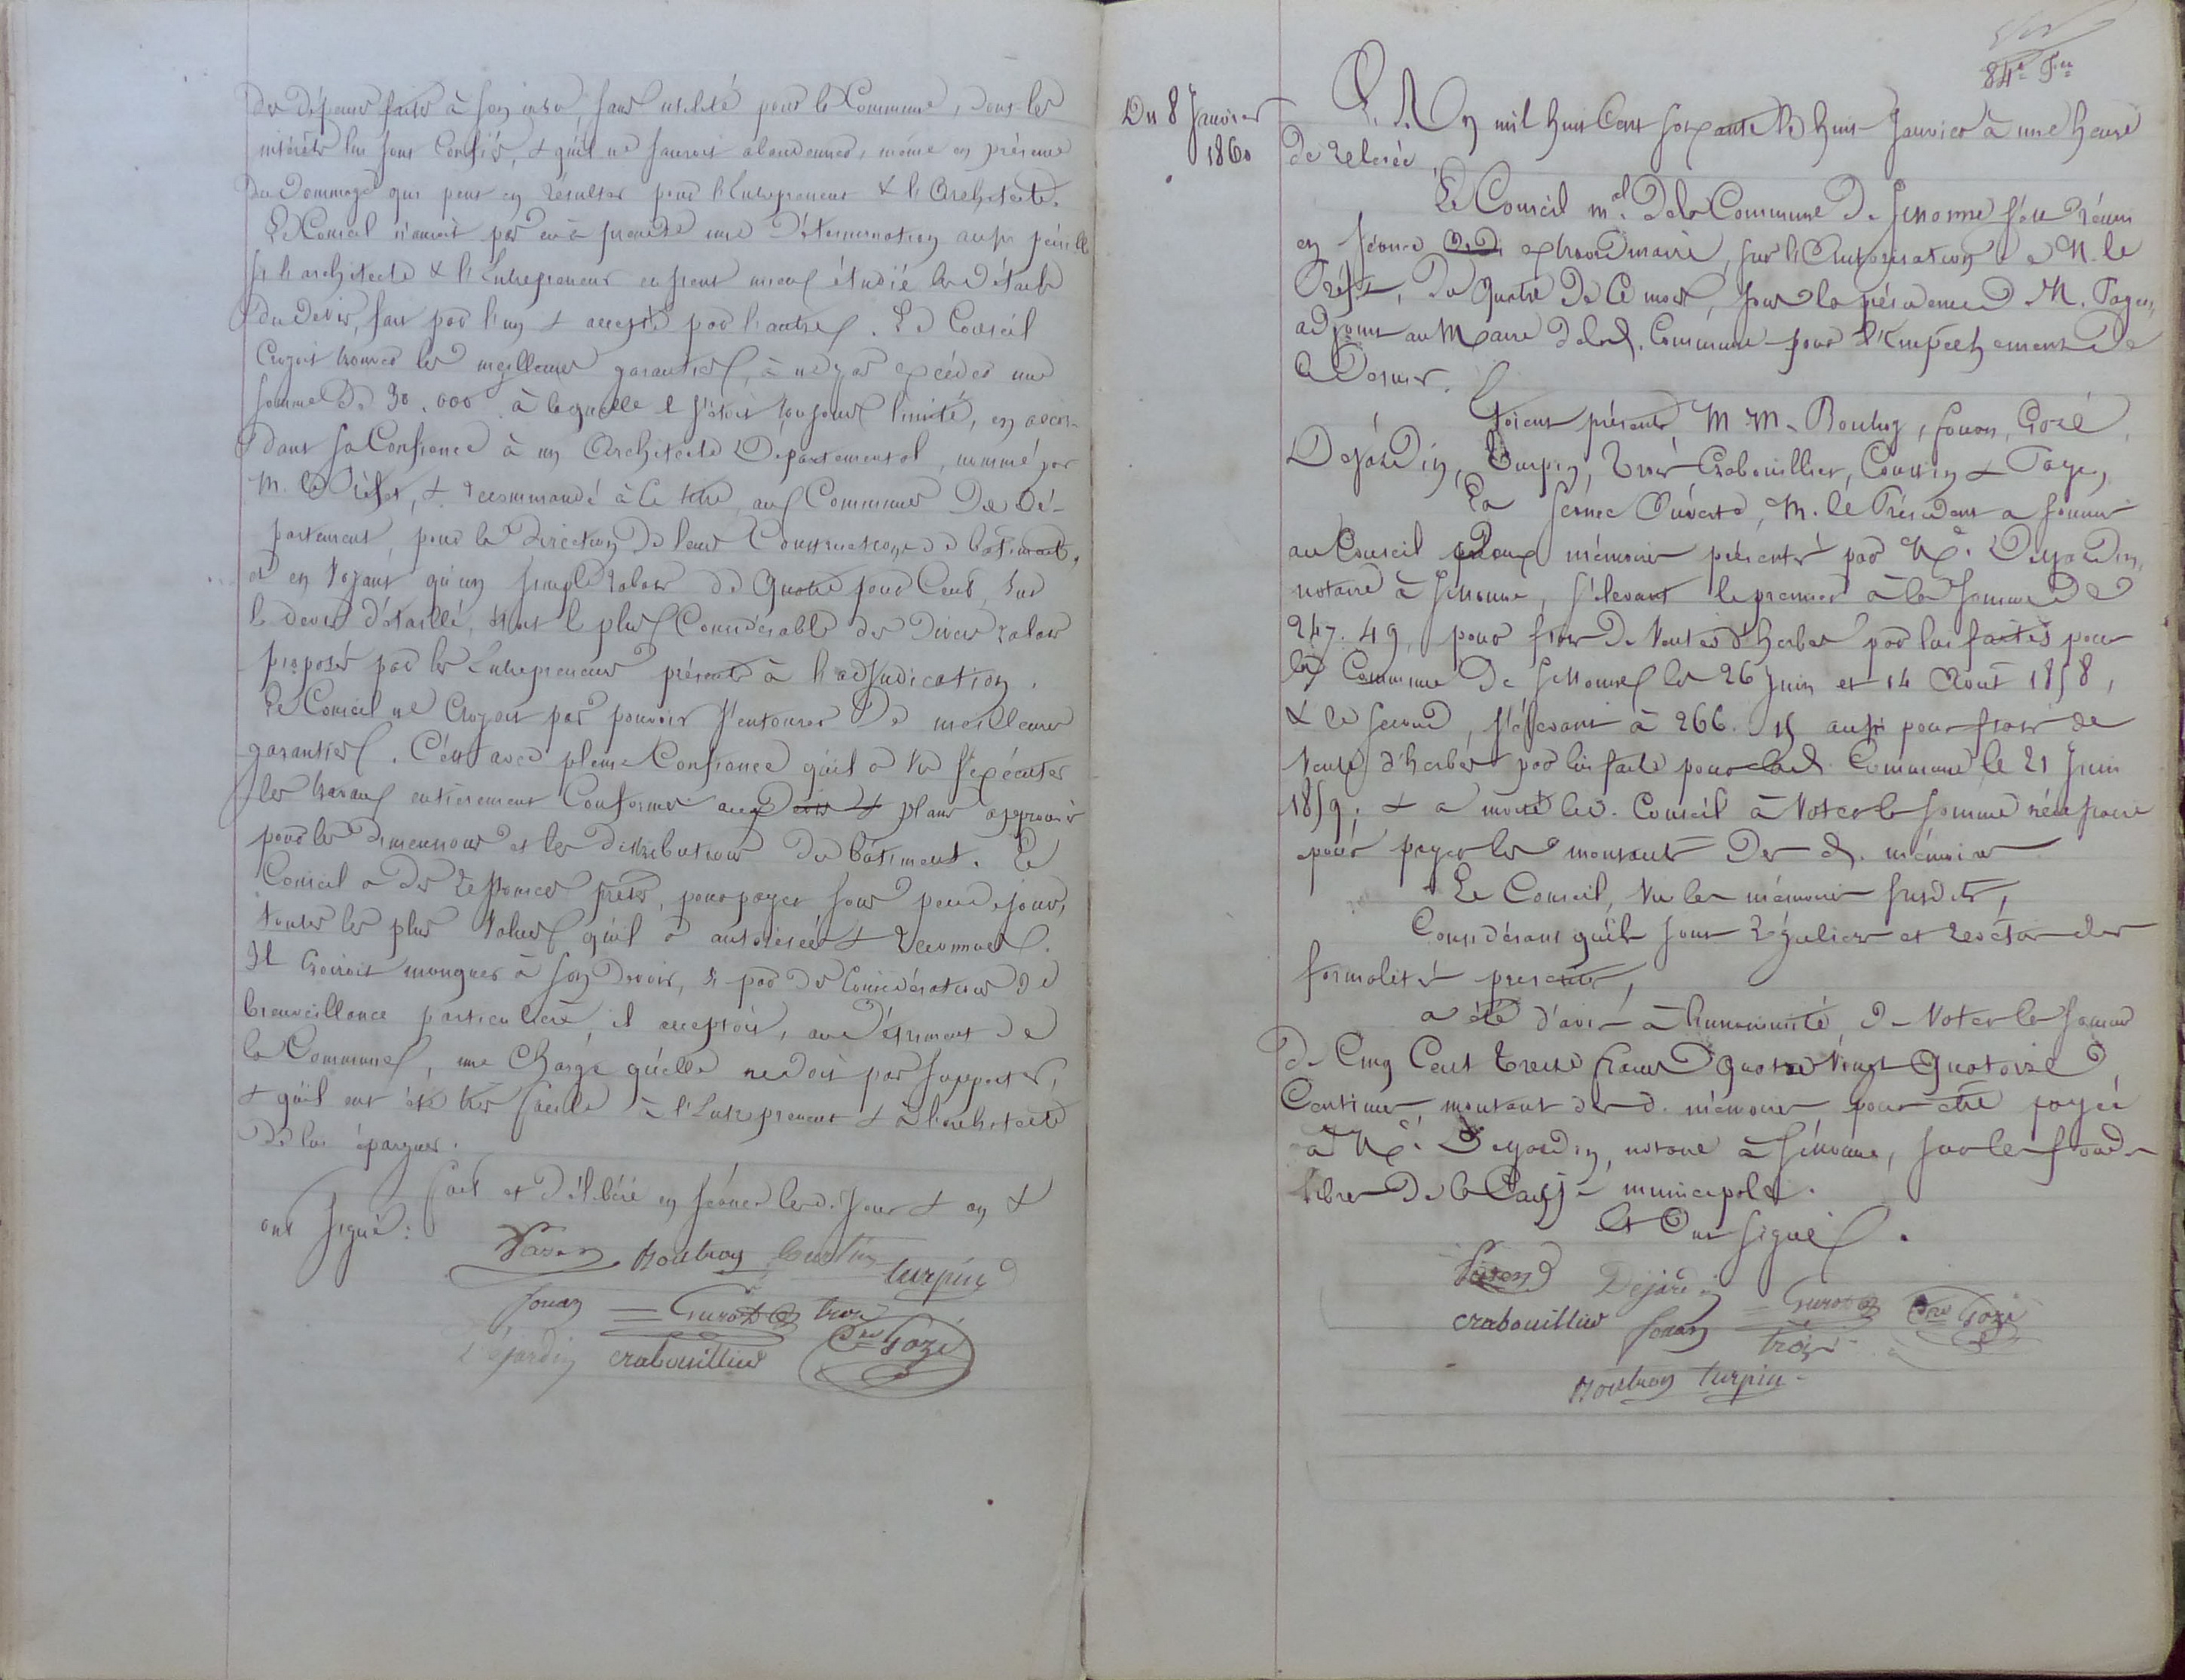 des dépenses faites à son insu, sans utilité pour la Commune, dont les
intérêts lui sont Confiés, & qu'il ne sauroit abandonner, même en présence
du Dommage qui peut en résulter pour l'Entrepreneur & l'Architecte.
Le Conseil n'auroit pas eu à prendre une Détermination aussi pénible
si l'architecte & l'Entrepreneur eussent mieux étudié les détails
du devis, fait par l'un & accepté par l'autre. Le Conseil
Croyoit trouver les meilleures garanties, à ne pas excéder une
somme de 30.000 à laquelle il s'étoit toujours limité, en accor-
dant sa Confiance à un Architecte Départemental, nommé par
M. le Préfet, & recommandé à ce titre, aux Communes du Dé-
partement, pour la Direction de leurs Constructions de bâtiments,
et en Voyant qu'un simple rabais de Quatre pour Cent, sur
le devis détaillé, étoit le plus Considérable des Divers rabais
proposés par les Entrepreneurs présents à l'adjudication.
Le Conseil ne Croyoit pas pouvoir s'entourer de meilleures
garanties. C'est avec pleine Confiance qu'il a Vu s'exécuter
les travaux entièrement Conformes aux Devis & plans approuvés
pour les dimensions et les distributions du bâtiment. Le
Conseil a des ressources prêtes, pour payer sous peu de jours,
toutes les plus Values qu'il a autorisées & reconnues.
Il Croiroit manquer à son Devoir, si par des Considérations de
bienveillance particulière, il acceptoit, au détriment de
la Commune, une Charge qu'elle ne doit pas supporter,
& qu'il eut été très facile à l'Entrepreneur & à l'architecte
de lui épargner.
Fait et Délibéré en séance lesd. jour & an &
ont signé:
Boutroy Courtin turpin
fouan Gurot troré
Dejardin crabouillier Gozé
84e
Du 8 Janvier
1860
L'An mil huit Cent soixante le huit Janvier à une heure
de relevée,
Le Conseil mal. de la Commune de Sissonne s'est réuni
en séance extraordinaire, sur l'autorisation de M. le
Préfet, du quatre de Ce mois, sous la présidence de M.
adjoint au Maire de lad. Commune pour l'Empêchement de
Ce Dernier.
Etoient présents M.M. Boutroy, fouan, Gozé,
Dejardin, Turpin, Crabouillier, Courtin &
La Séance Ouverte, M. le Président a soumis
au Conseil deux mémoires présentés par Me. Dejardin,
notaire à Sissonne, s'élevant le premier à la somme de
247. 49, pour frais de Ventes d'herbes par lui faites pour
la Commune de Sissonne les 26 Juin et 14 Août 1858,
& le second, s'élevant à 266. 45 aussi pour frais de
Vente d'herbes par lui faite pour lad. Commune le 21 Juin
1859; & a invité led. Conseil à Voter la somme nécessaire
pour payer le montant des d. mémoires
Le Conseil, Vu les mémoires susdits,
Considérant qu'ils sont réguliers et revêtus des
formalités prescrites,
a été d'avis à l'unanimité de Voter la somme
de Cinq Cent treize francs Quatre Vingt Quatorze
Centimes, montant des d. mémoires pour être payée
à Me. Dejardin, notaire à Sissonne, sur les fonds
libres de la Caisse municipale.
Et Ont signé.
Dejardin Gurot Gozé
crabouillier fouan troré
Boutroy turpin